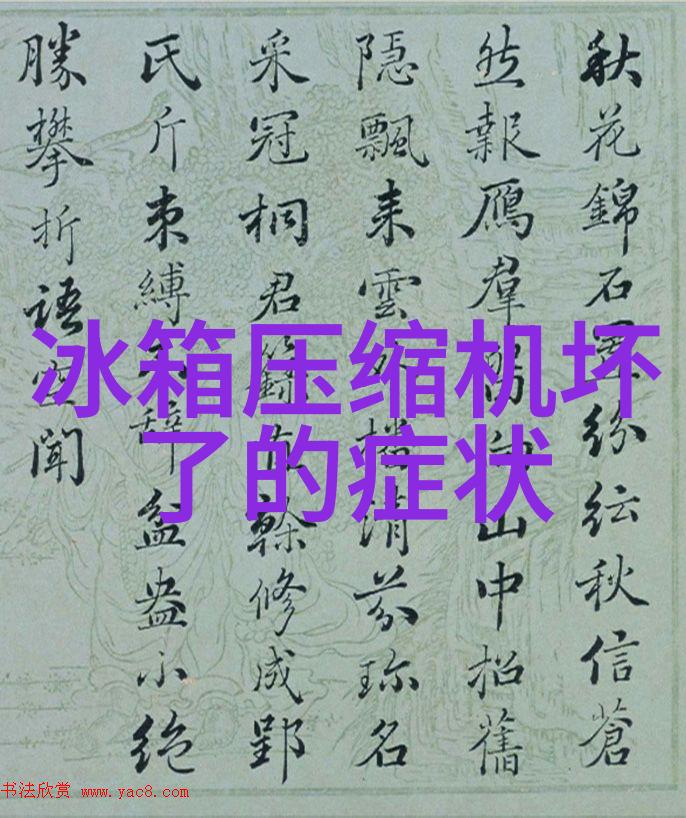 冰箱压缩机坏
了的症状
秋花錦石紛紜秋信蒼
然報鴈羣山中招舊
隱飄来雲外清芬珎名
采冠桐君榦修成郢
氏斤束縛辭盆盎小絶
勝攀折語空聞
书法欣赏 www.yac8.com